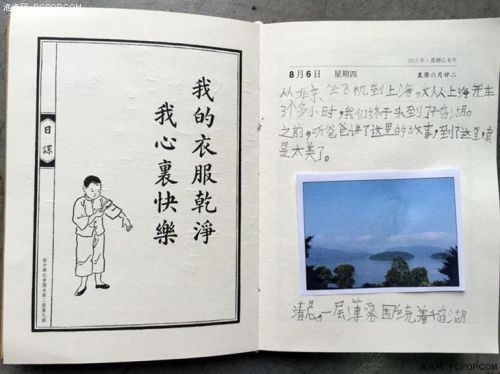 泡泡网 PCPOP.COM
日課
我的衣服乾淨
我心裏快樂
2015年·農曆乙未年
8月6日 星期四 農曆六月廿二
从北京坐飞机到上海,又从上海开车
3个多小时,我们终于来到了千岛湖。
之前,听爸爸讲了这里的故事,到了这里,真
是太美了。
清晨,一层薄雾围绕着千岛湖
泡泡网 PCPOP.COM